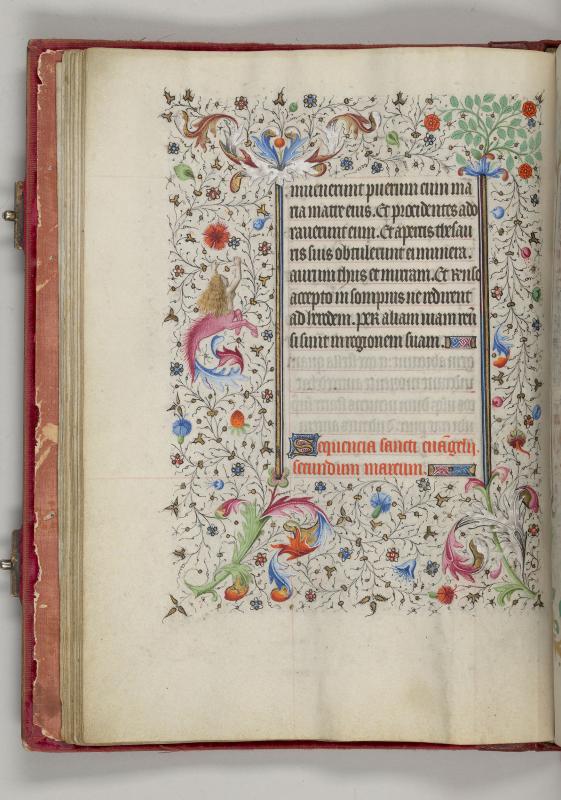 inuenerunt puerum cum ma
ria matre eius. Et procidentes ado
rauerunt eum. Et apertis thesau
ris suis obtulerunt ei munera.
aurum thus et mirram. Et respo
accepto in sompnis ne redirent
ad herodem. per aliam uiam reu
si sunt in regionem suam.
Sequencia sancti euãgelii.
secundum marcum.